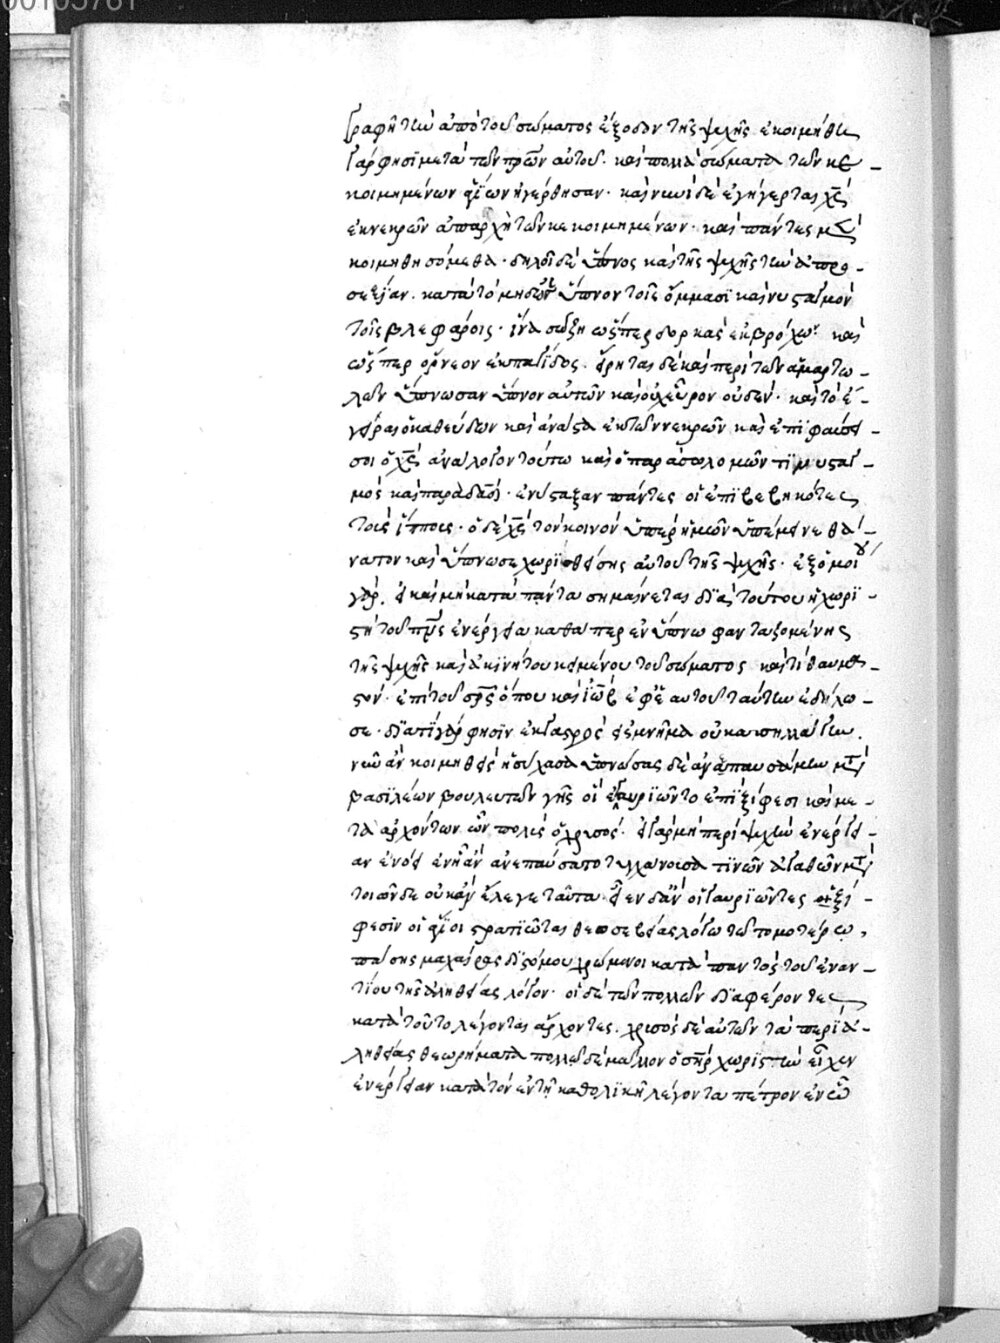 00105761
γραφῆ τὴν ἀπὸ τοῦ σώματος ἔξοδον τῆς ψυχῆς ἐκοιμήθη
γάρ φησϊ μετὰ τῶν πρων αὐτοῦ· καὶ πολλὰ σώματα τῶν κε
κοιμημένων ἁγίων ἠγέρθησαν· καὶ νυνὶ δὲ ἐγήγερται χς
ἐκ νεκρῶν ἀπαρχὴ τῶν κεκοιμημένων· καὶ πάντες μὲν
κοιμηθησόμεθα· δηλοῖ δὲ ὕπνος καὶ τῆς ψυχῆς τὴν ἀπροσ
εξίαν· κατὰ τὸ μὴ δῶς ὕπνον τοῖς ὄμμασϊ καὶ νυσταγμὸν
τοῖς βλεφάροις· ἵνα σώζη ὥσπερ δορκὰς ἐκ βρόχων καὶ
ὥσπερ ὄρνεον ἐκ παγίδος· εἴρηται δὲ καὶ περὶ τῶν ἁμαρτω
λῶν ὕπνωσαν ὕπνον αὐτῶν καὶ οὐχ εὗρον οὐδέν· καὶ τὸ ἔ
γειραι ὁ καθεύδων καὶ ἀνάστα ἐκ τῶν νεκρῶν καὶ ἐπιφαύσει
σοι ὁ χς ἀνάλογον τούτω καὶ ὁ παρὰ σολομῶντι νυσταγ
μὸς καὶ παρὰ δαδ· ἐνύσταξαν πάντες οἱ ἐπιβεβηκότες
τοῖς ἵπποις· ὁ δὲ χς τὸν κοινὸν ὑπὲρ ἡμῶν ὑπέμεινε θά
νατον καὶ ὕπνωσε χωρισθείσης αὐτοῦ τῆς ψυχῆς· ἐξ ὁμοίου
γὰρ. εἰ καὶ μὴ κατὰ πάντα σημαίνεται διὰ τούτου ἡ χωρϊ
στὴ τοῦ πνς ἐνέργεια καθάπερ ἐν ὕπνω φανταζομένης
τῆς ψυχῆς καὶ ἀκινήτου κειμένου τοῦ σώματος καὶ τί θαυμα
στόν· ἐπὶ τοῦ σρς ὅπου καὶ ἰὼβ ἐφ' ἑαυτοῦ ταύτην ἐδήλω
σε· διατί γάρ φησϊν ἐκ γαστρὸς εἰς μνῆμα οὐκ ἀπηλλάγην.
νῦν ἂν κοιμηθεὶς ἡσύχασα ὑπνώσας δὲ ἀνεπαυσάμην μετὰ
βασϊλέων βουλευτῶν γῆς οἳ ἐγαυρϊῶντο ἐπὶ ξίφεσι καὶ με
τὰ ἀρχόντων ὧν πολὺς ὁ χρυσός· εἰ γὰρ μὴ περὶ ψυχὴν ἐνέργει
αν ἐνόει ἐν ἧ ἂν ἀνεπαύσατο τυγχάνουσα τϊνῶν ἀγαθῶν μετὰ
τοιῶνδε οὐκ ἂν ἔλεγε ταῦτα· εἶεν δ' ἂν οἱ γαυρϊῶντες ἐπὶ ξί
φεσϊν οἱ ἅγιοι στρατϊῶται θεοσεβείας λόγω τῶ τομοτέρω
πάσης μαχαίρας διστόμου χρώμενοι κατὰ παντὸς τοῦ ἐναν
τίου τῆς ἀληθείας λόγου· οἱ δὲ τῶν πολλῶν διαφέροντες
κατὰ τοῦτο λέγονται ἄρχοντες. χρυσὸς δὲ αὐτῶν τὰ περὶ ἀ
ληθείας θεωρήματα πολλῶ δὲ μᾶλλον ὁ σηρ χωρϊστὴν εἶχεν
ἐνέργειαν κατὰ τὸν ἐν τῆ καθολϊκῆ λέγοντα πέτρον ἐν ὧ